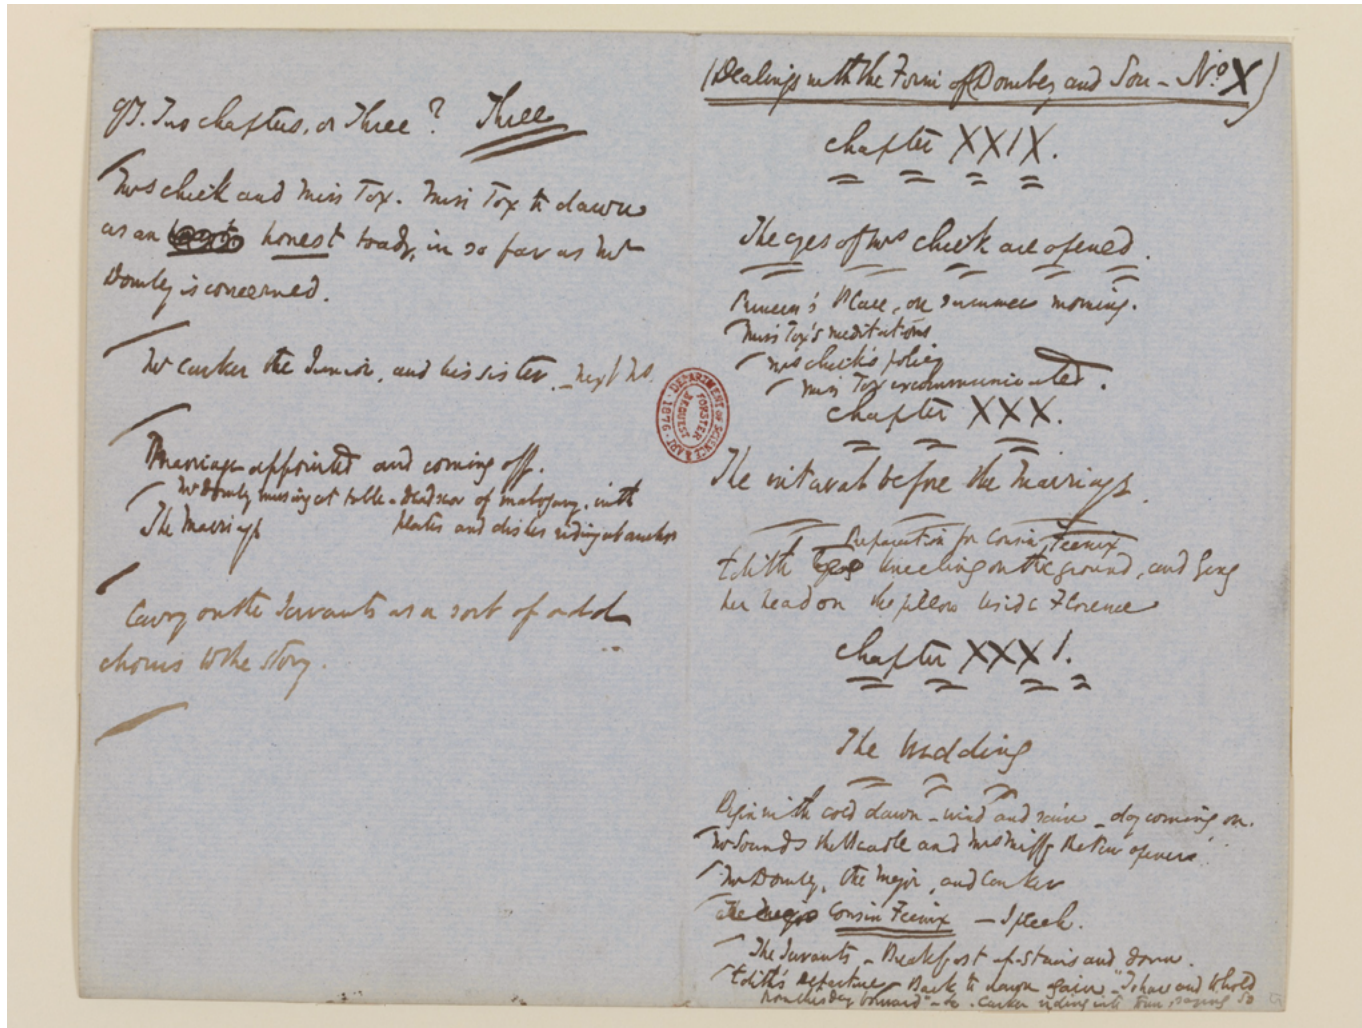 Qy. Two chapters, or Three? Three
Mrs Chick and Miss Tox. Miss Tox to dawn
as an honest toady, in so far as Mr
Dombey is concerned.
Mr Carker the Junior, and his sister. _ next No.
Marriage appointed and coming off.
Mr Dombey musing at table _ dead sea of mahogany, with
The Marriage plates and dishes riding at anchor
Carry on the Servants as a sort of
chorus to the story.
(Dealings with the Firm of Dombey and Son _ No. X)
Chapter XXIX.
The eyes of Mrs Chick are opened.
Princess's Place, on summer morning.
Miss Tox's meditations
Mrs Chick's policy
Miss Tox excommunicated.
Chapter XXX.
The interval before the Marriage.
Preparation for Cousin Feenix
Edith kneeling on the ground, and
her head on the pillow beside Florence
Chapter XXXI.
The Wedding
Begin with cold dawn _ wind and rain _ day coming on.
Mr Sownds the Beadle and Mrs Miff the Pew opener
Mr Dombey, the Major, and Carker
The Cousin Feenix _ Speech.
The Servants _ Breakfast up-stairs and down.
Edith's Departure _ Back to dawn again _ "To have and to hold
from this day forward" _ &c. Carker riding into town, saying so
DEPARTMENT OF SCIENCE & ART · 1876 ·
FORSTER BEQUEST